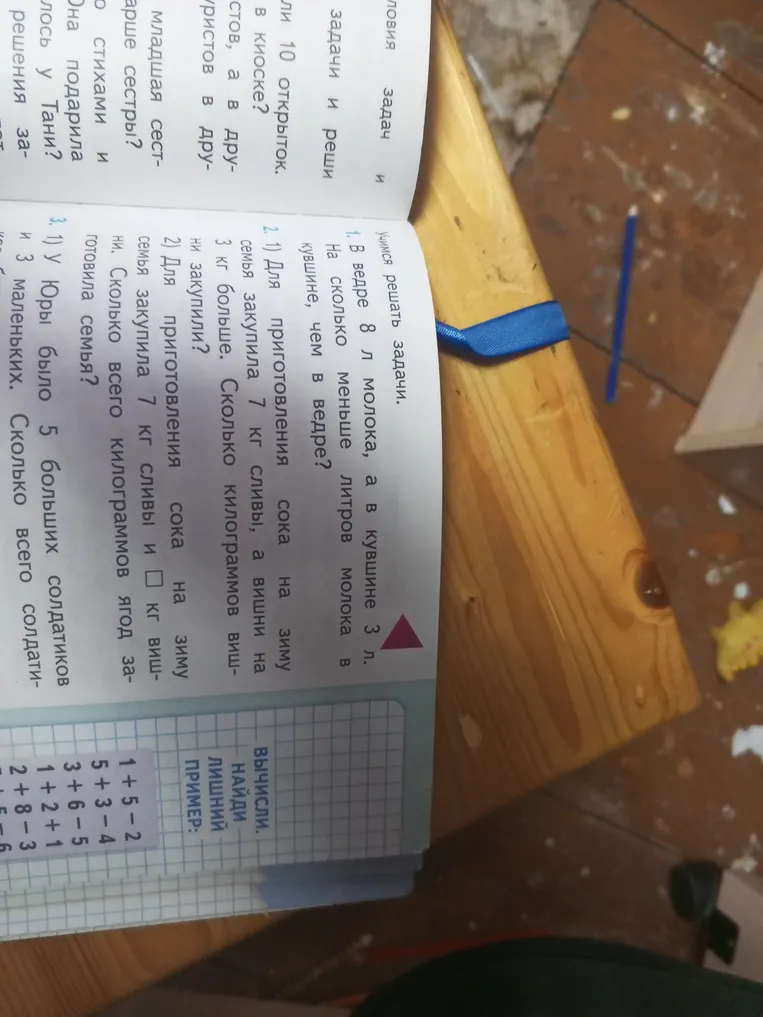 ловия задач и
задачи и реши
ли 10 открыток.
в киоске?
стов, а в дру-
уристов в дру-
младшая сест-
арше сестры?
о стихами и
Она подарила
лось у Тани?
решения за-
УЧИМСЯ РЕШАТЬ ЗАДАЧИ.
1. В ведре 8 л молока, а в кувшине 3 л.
На сколько меньше литров молока в
кувшине, чем в ведре?
2. 1) Для приготовления сока на зиму
семья закупила 7 кг сливы, а вишни на
3 кг больше. Сколько килограммов виш-
ни закупили?
2) Для приготовления сока на зиму
семья закупила 7 кг сливы и □ кг виш-
ни. Сколько всего килограммов ягод за-
готовила семья?
3. 1) У Юры было 5 больших солдатиков
и 3 маленьких. Сколько всего солдати-
ВЫЧИСЛИ.
НАЙДИ
ЛИШНИЙ
ПРИМЕР:
1 + 5 − 2
5 + 3 − 4
3 + 6 − 5
1 + 2 + 1
2 + 8 − 3